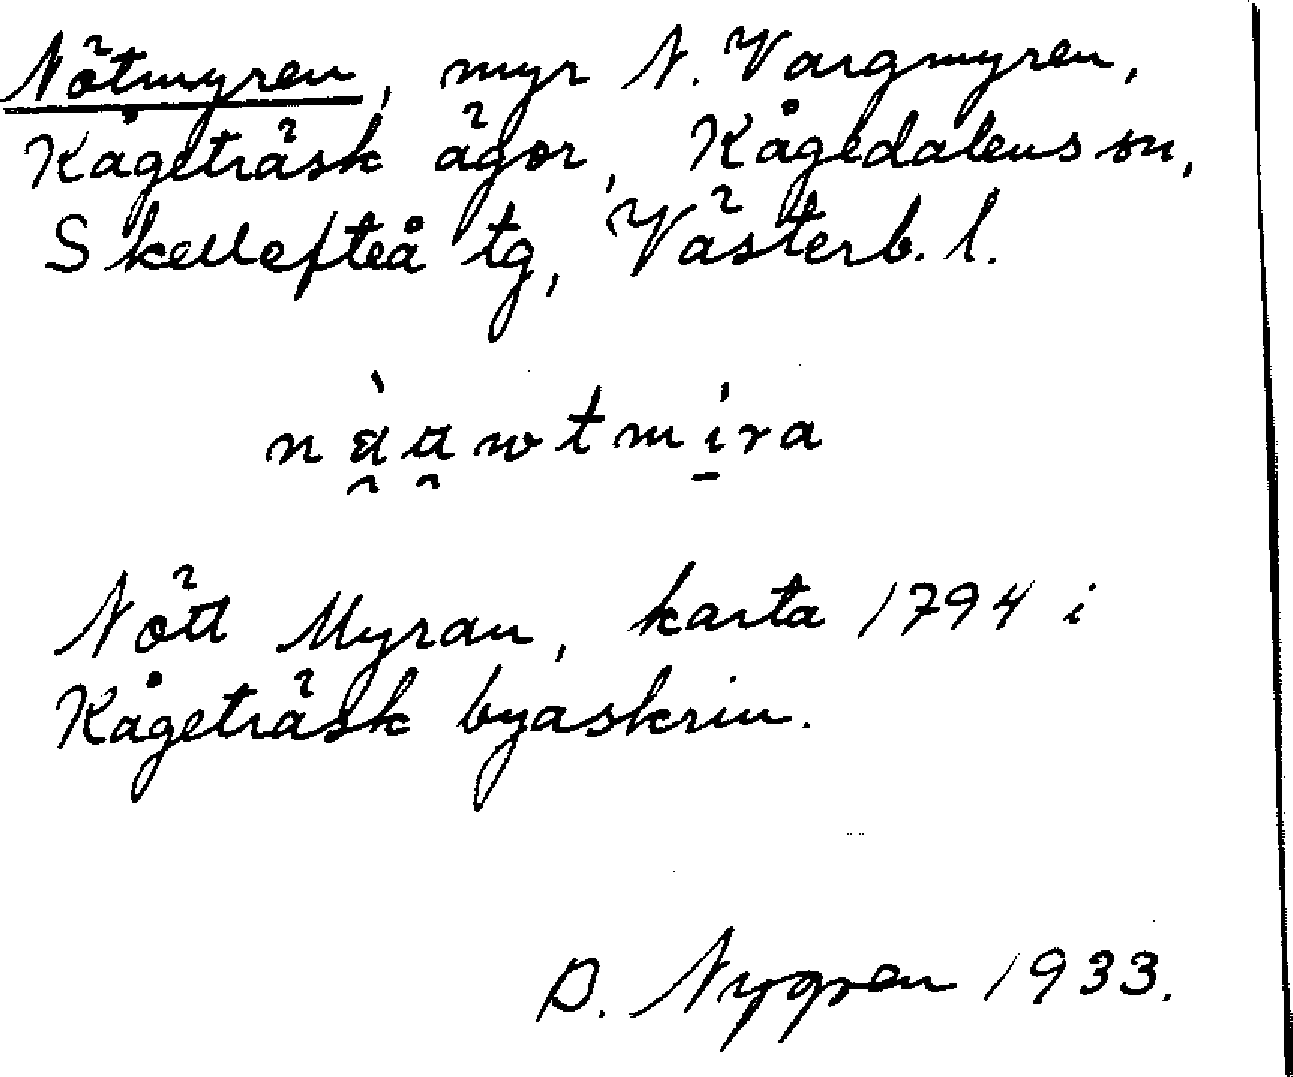 Nötmyren, myr N. Vargmyren,
Kågeträsk ägor, Kågedalens sn,
Skellefteå tg, Västerb. l.
Nött Myran, karta 1794 i
Kågeträsk byaskrin.
D. Nygren 1933.